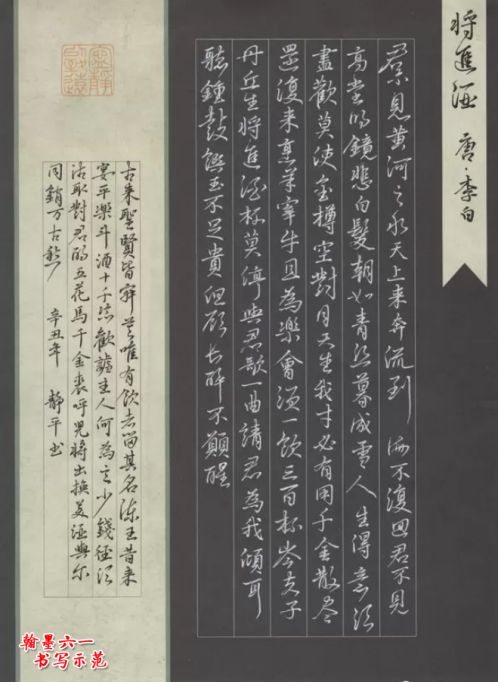 将進酒 唐·李白
君不見黄河之水天上来奔流到海不復回君不見
高堂明鏡悲白髮朝如青絲暮成雪人生得意須
盡歡莫使金樽空對月天生我才必有用千金散盡
還復来烹羊宰牛且為樂會須一飲三百杯岑夫子
丹丘生将進酒杯莫停與君歌一曲請君為我傾耳
聽鍾鼓饌玉不足貴但願长醉不願醒
古来聖賢皆寂寞唯有飲者留其名陳王昔来
宴平樂斗酒十千恣歡謔主人何為言少錢徑須
沽取對君酌五花馬千金裘呼兒将出換美酒與尔
同銷万古愁 辛丑年 靜平书
寧靜致遠
翰墨六一
书写示范